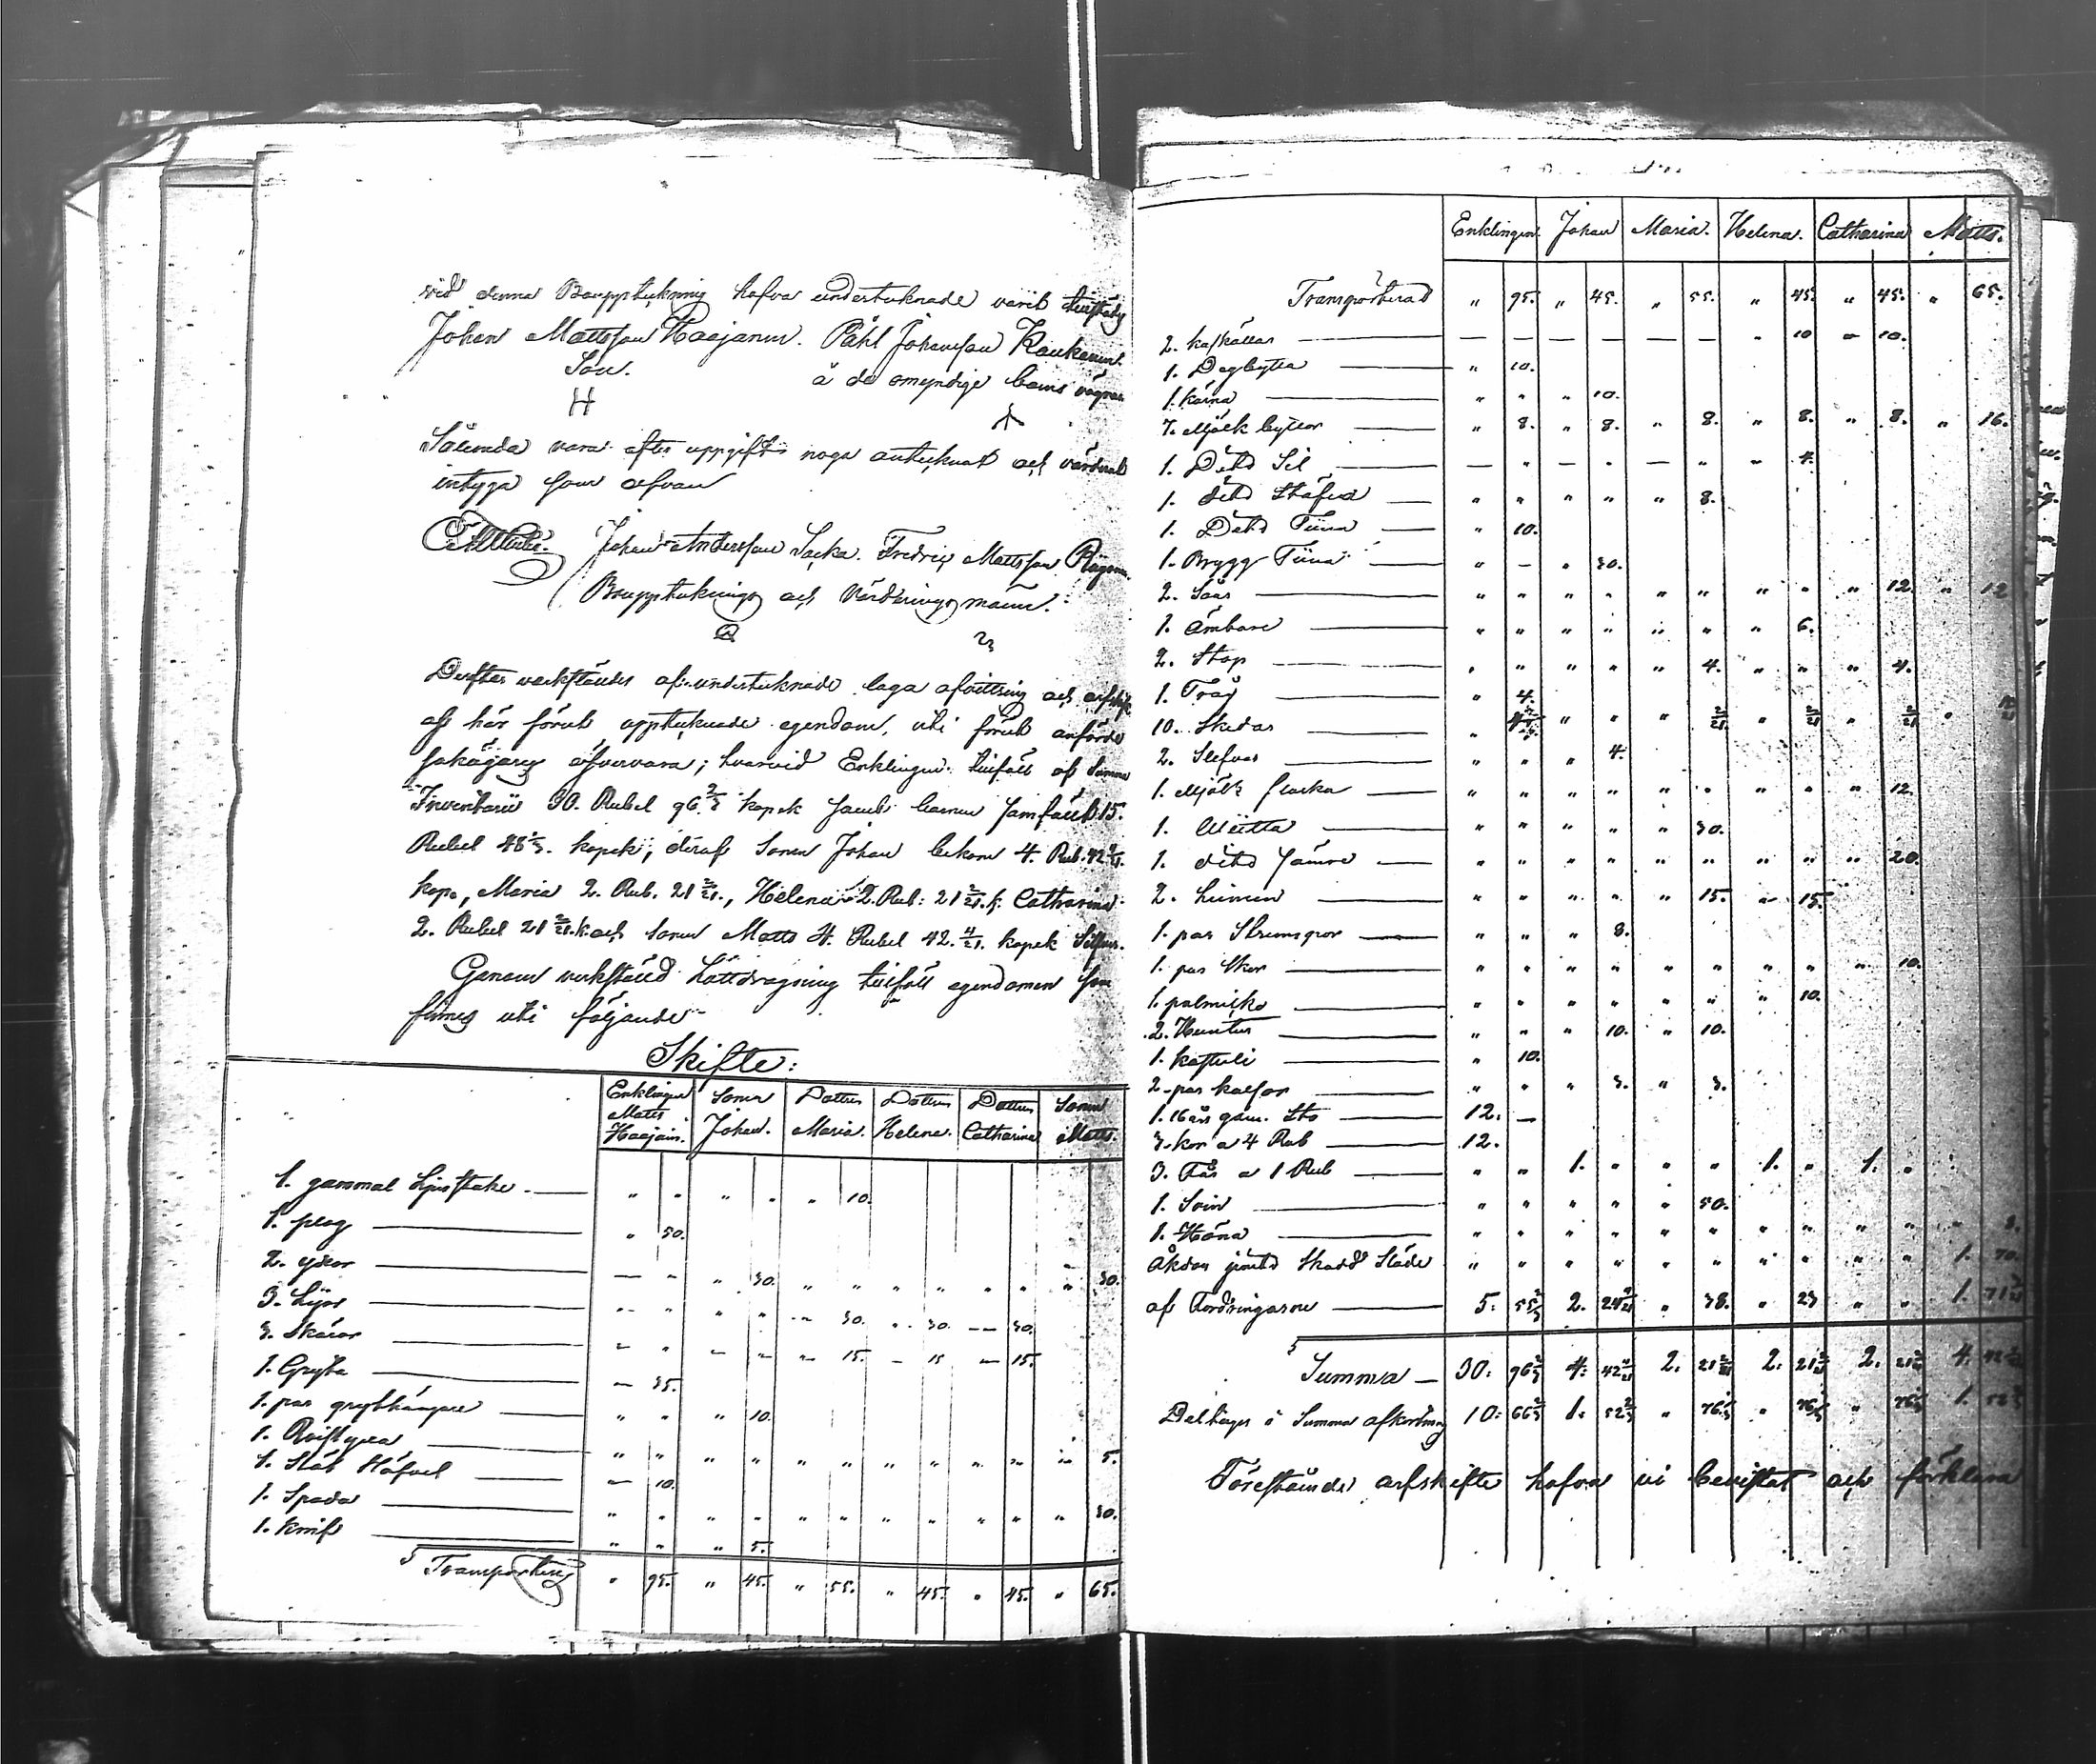 vid denna Bouppteckning hafva undertecknade varit tillstädes
Johan Mattsson Haajanen. Påhl Johansson Kaukanen.
Son. å de omyndige barns vägnar
H
Sålunda vara efter uppgift noga antecknat och värderat
intyga som ofvan
Johan Andersson Sacka. Fredric Mattsson
Bouppteckning och Värderings männ.
Derefter verkstäldes af undertecknade laga afvittring och arfskifte
af här förut upptecknade egendom, uti förut anförde
sakägares öfvervara; hvarvid Enklingen tillföll af Summa
Inventarii 30. Rubel 96 2/3 kopek samt barnen samfält 15.
Rubel 48 1/3. kopek; deraf Sonen Johan bekom 4. Rub. 42 4/21.
kop., Maria 2. Rub. 21 2/21., Helena 2. Rub: 21 2/21. k. Catharina
2. Rubel 21 2/21. k. och Sonen Matts 4. Rubel 42. 4/21. kopek Silfver.
Genom verkstäld Lottdragning tillföll egendomen som
finnes uti följande
Skifte:
Enklingen Matts Haajain. Sonen Johan. Dottren Maria. Dottren Helena. Dottren Catharina Sonen Matts.
1. gammal Ljusstake " " " " " 10.
1. plog " 50.
2. yxor — " " 30. " " " " " " " 30.
3. Lijor " " " " " 30. " 30. — 30.
3. Skäror " " " " " 15. — 15 — 15.
1. Gryta — 35.
1. par grythängare " " " 10.
1. " " " " " " " " " " " 5.
1. Stål — 10.
1. Spada " " " " " " " " " " " 30.
1. knif " " " 5.
Transporteras " 95. " 45. " 55. " 45. " 45. " 65.
Enklingen. Johan Maria. Helena. Catharina Matts.
Transporterad " 95. " 45. " 55. " 45. " 45. " 65.
2. — — — — — — " 10 " 10.
1. Degbytta " 10.
1. Kärna " " " 10.
7. Mjölk byttor " 8. " 8. " 8. " 8. " 8. " 16.
1. Ditto Sil — " — " — " " 4.
1. ditto Stäfva " " " " " 8.
1. Ditto Tiina " 10.
1. Brygg Tiina " — " 30.
2. Såar " " " " " " " " " 12. " 12
1. Ämbare " " " " " " " 6.
2. Stop " " " " " 4. " " " 4.
1. Tråg " 4.
10. Skedar " " " " 2/21 " 2/21 " 2/21 "
2. Slefvar " " " 4.
1. Mjölk flaska " " " " " " " " " 12
1. " " " " " 30.
1. ditto sämre " " " " " " " " " 20.
2. " " " " " 15. " 15.
1. par Strumpor " " " 8.
1. par Skor " " " " " " " " " 10.
1. " " " " " " " 10.
2. Huntus " " " 10. " 10.
1. Kaftuli " 10.
2. par " " " 3. " 3.
1. 16 års gam. Sto 12. —
3. kor a 4 Rub 12.
3. Får a 1 Rub " " 1. " " " 1. " 1. "
1. Svin " " " " " 50.
1. Höna " " " " " " " " " " " 8.
Åkdon jemte Skodd Släde " " " " " " " " " " 1. 70.
af Fordringarne 5. 55 2/3 2. 24 4/21 " 38. " 23 " " 1. 71
Summa — 30. 96 2/3 4. 42 4/21 2. 21 2/21 2. 21 2/21 2. 21 2/21 4. 42 4/21
10. 66 2/3 1. 52 2/3 " 76 1/3 " 76 1/3 " 76 1/3 1. 52 2/3
Förestående arfskifte hafva vi bevistat och förklara